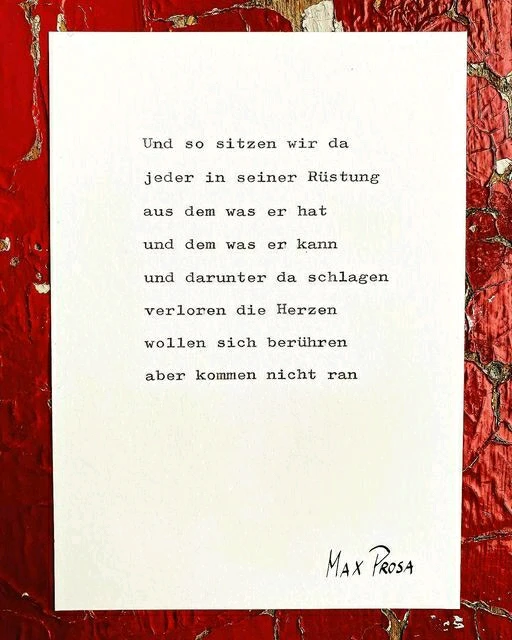 Und so sitzen wir da
jeder in seiner Rüstung
aus dem was er hat
und dem was er kann
und darunter da schlagen
verloren die Herzen
wollen sich berühren
aber kommen nicht ran
MAX PROSA